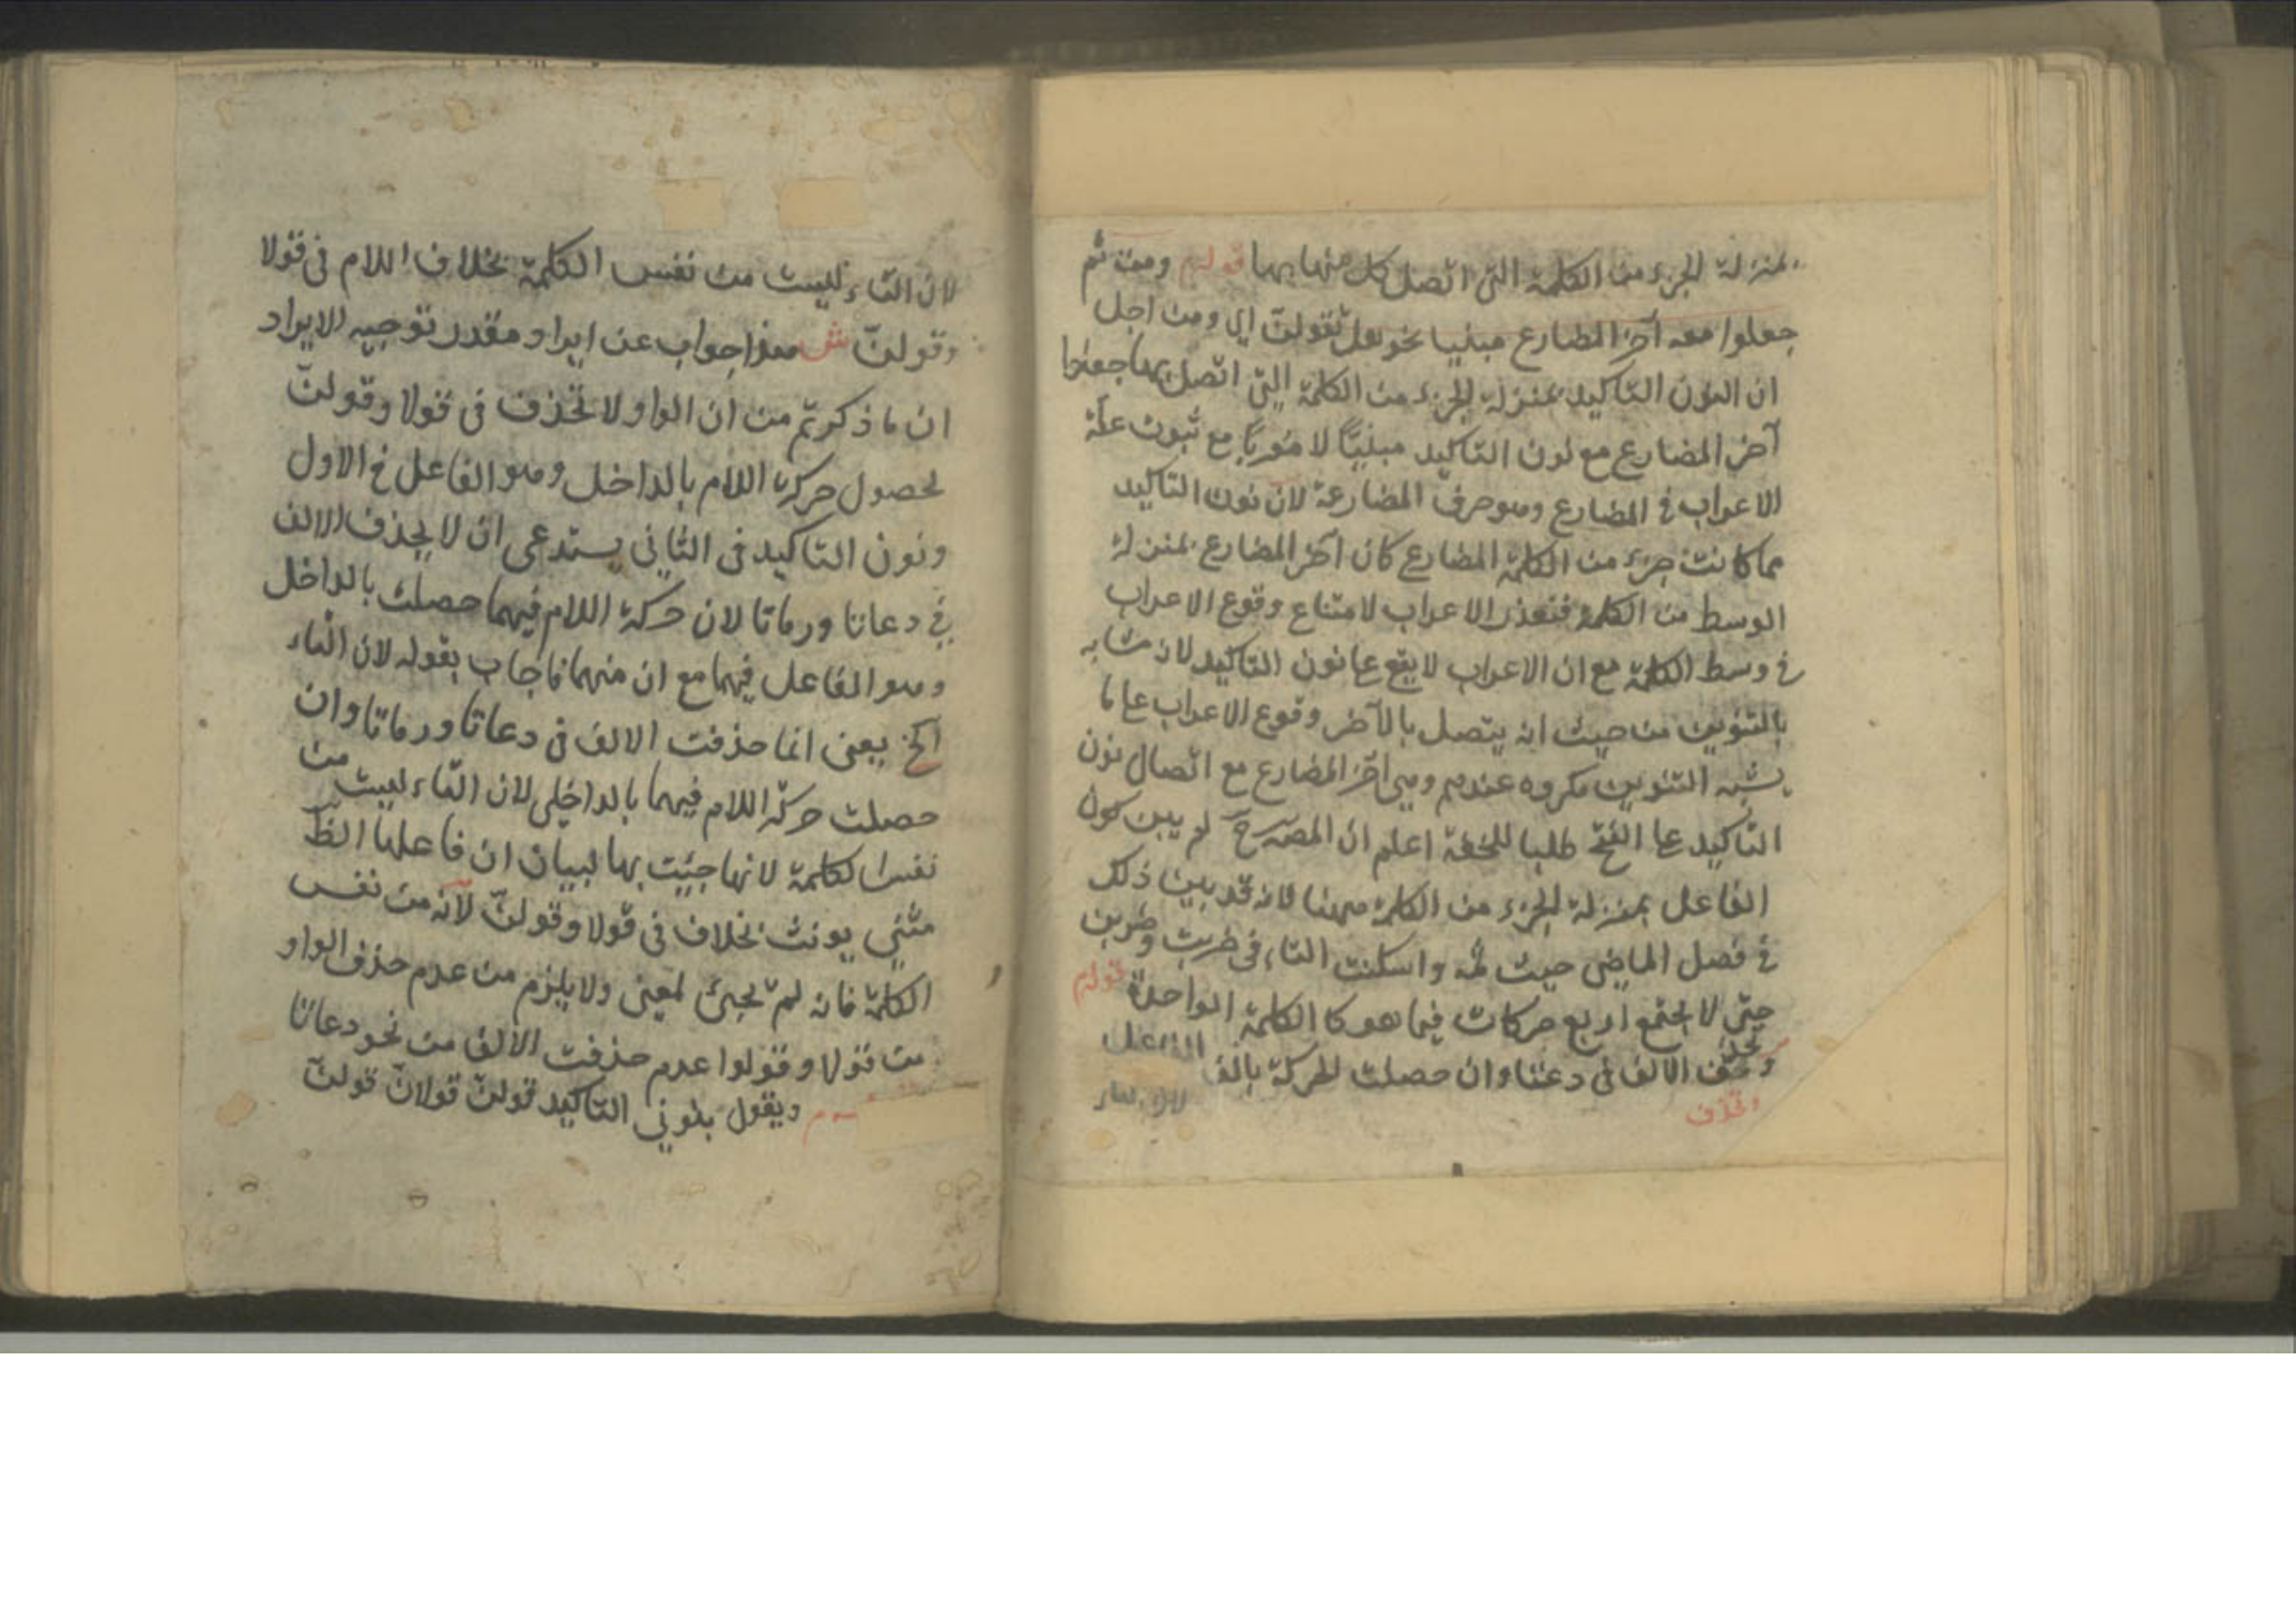 بمنزلة الجزء من الكلمة التى اتصل كل منهما بها قوله ومن ثم
جعلوا معه آخر المضارع مبنيا نحو هل تقولنّ اى ومن اجل
ان النون التاكيد بمنزلة الجزء من الكلمة التى اتصل بها جعلوا
آخر المضارع مع نون التاكيد مبنيّا لا معربا مع ثبوت علّة
الاعراب فى المضارع وهو حرف المضارعة لان نون التاكيد
مما كانت جزء من الكلمة المضارع كان آخر المضارع بمنزلة
الوسط من الكلمة فتعذر الاعراب لامتناع وقوع الاعراب
فى وسط الكلمة مع ان الاعراب لا يقع على نون التاكيد لان مشابه
بالتنوين من حيث انه يتصل بالآخر وقوع الاعراب على ما
يشبه التنوين مكروه عندهم وبنى آخر المضارع مع اتصال نون
التاكيد على الفتح طلبا للخفة اعلم ان المصرح لم يبين كون
الفاعل بمنزلة الجزء من الكلمة ههنا فانه قد بين ذلك
فى فصل الماضى حيث قال واسكنت التاء فى ضربت وضربن
حتى لا يجتمع اربع حركات فيما هو كالكلمة الواحدة قوله
وتحذف الالف فى دعتا وان حصلت الحركة بالف الفاعل
وتحذف
لان التاء ليست من نفس الكلمة بخلاف اللام فى قولا
وقولنّ ش هذا جواب عن ايراد مقدر توجيه الايراد
ان ما ذكرتم من ان الواو لا تحذف فى قولا وقولنّ
لحصول حركة اللام بالداخل وهو الفاعل فى الاول
ونون التاكيد فى الثانى يستدعى ان لا يحذف الالف
فى دعاتا ورماتا لان حركة اللام فيهما حصلت بالداخل
وهو الفاعل فيهما مع ان منهما فاجاب بقوله لان التاء
الخ يعنى انما حذفت الالف فى دعاتا ورماتا وان
حصلت حركة اللام فيهما بالداخلى لان التاء ليست من
نفس الكلمة لانها جيئت بها لبيان ان فاعلها
مثنى يونث بخلاف فى قولا وقولنّ لانه من نفس
الكلمة فانه لم يجئ لمعنى ولا يلزم من عدم حذف الواو
من قولا وقولوا عدم حذفت الالف من نحو دعاتا
ويقول بنونى التاكيد قولنّ قولانّ قولنّ